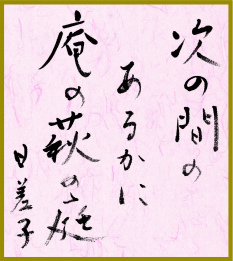 次の間の
あるかに
庵の萩の庭
日差子